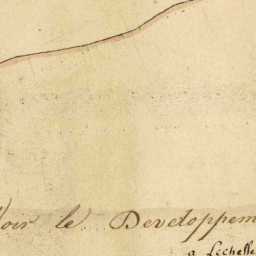 Voir le Developpem
a l'echelle